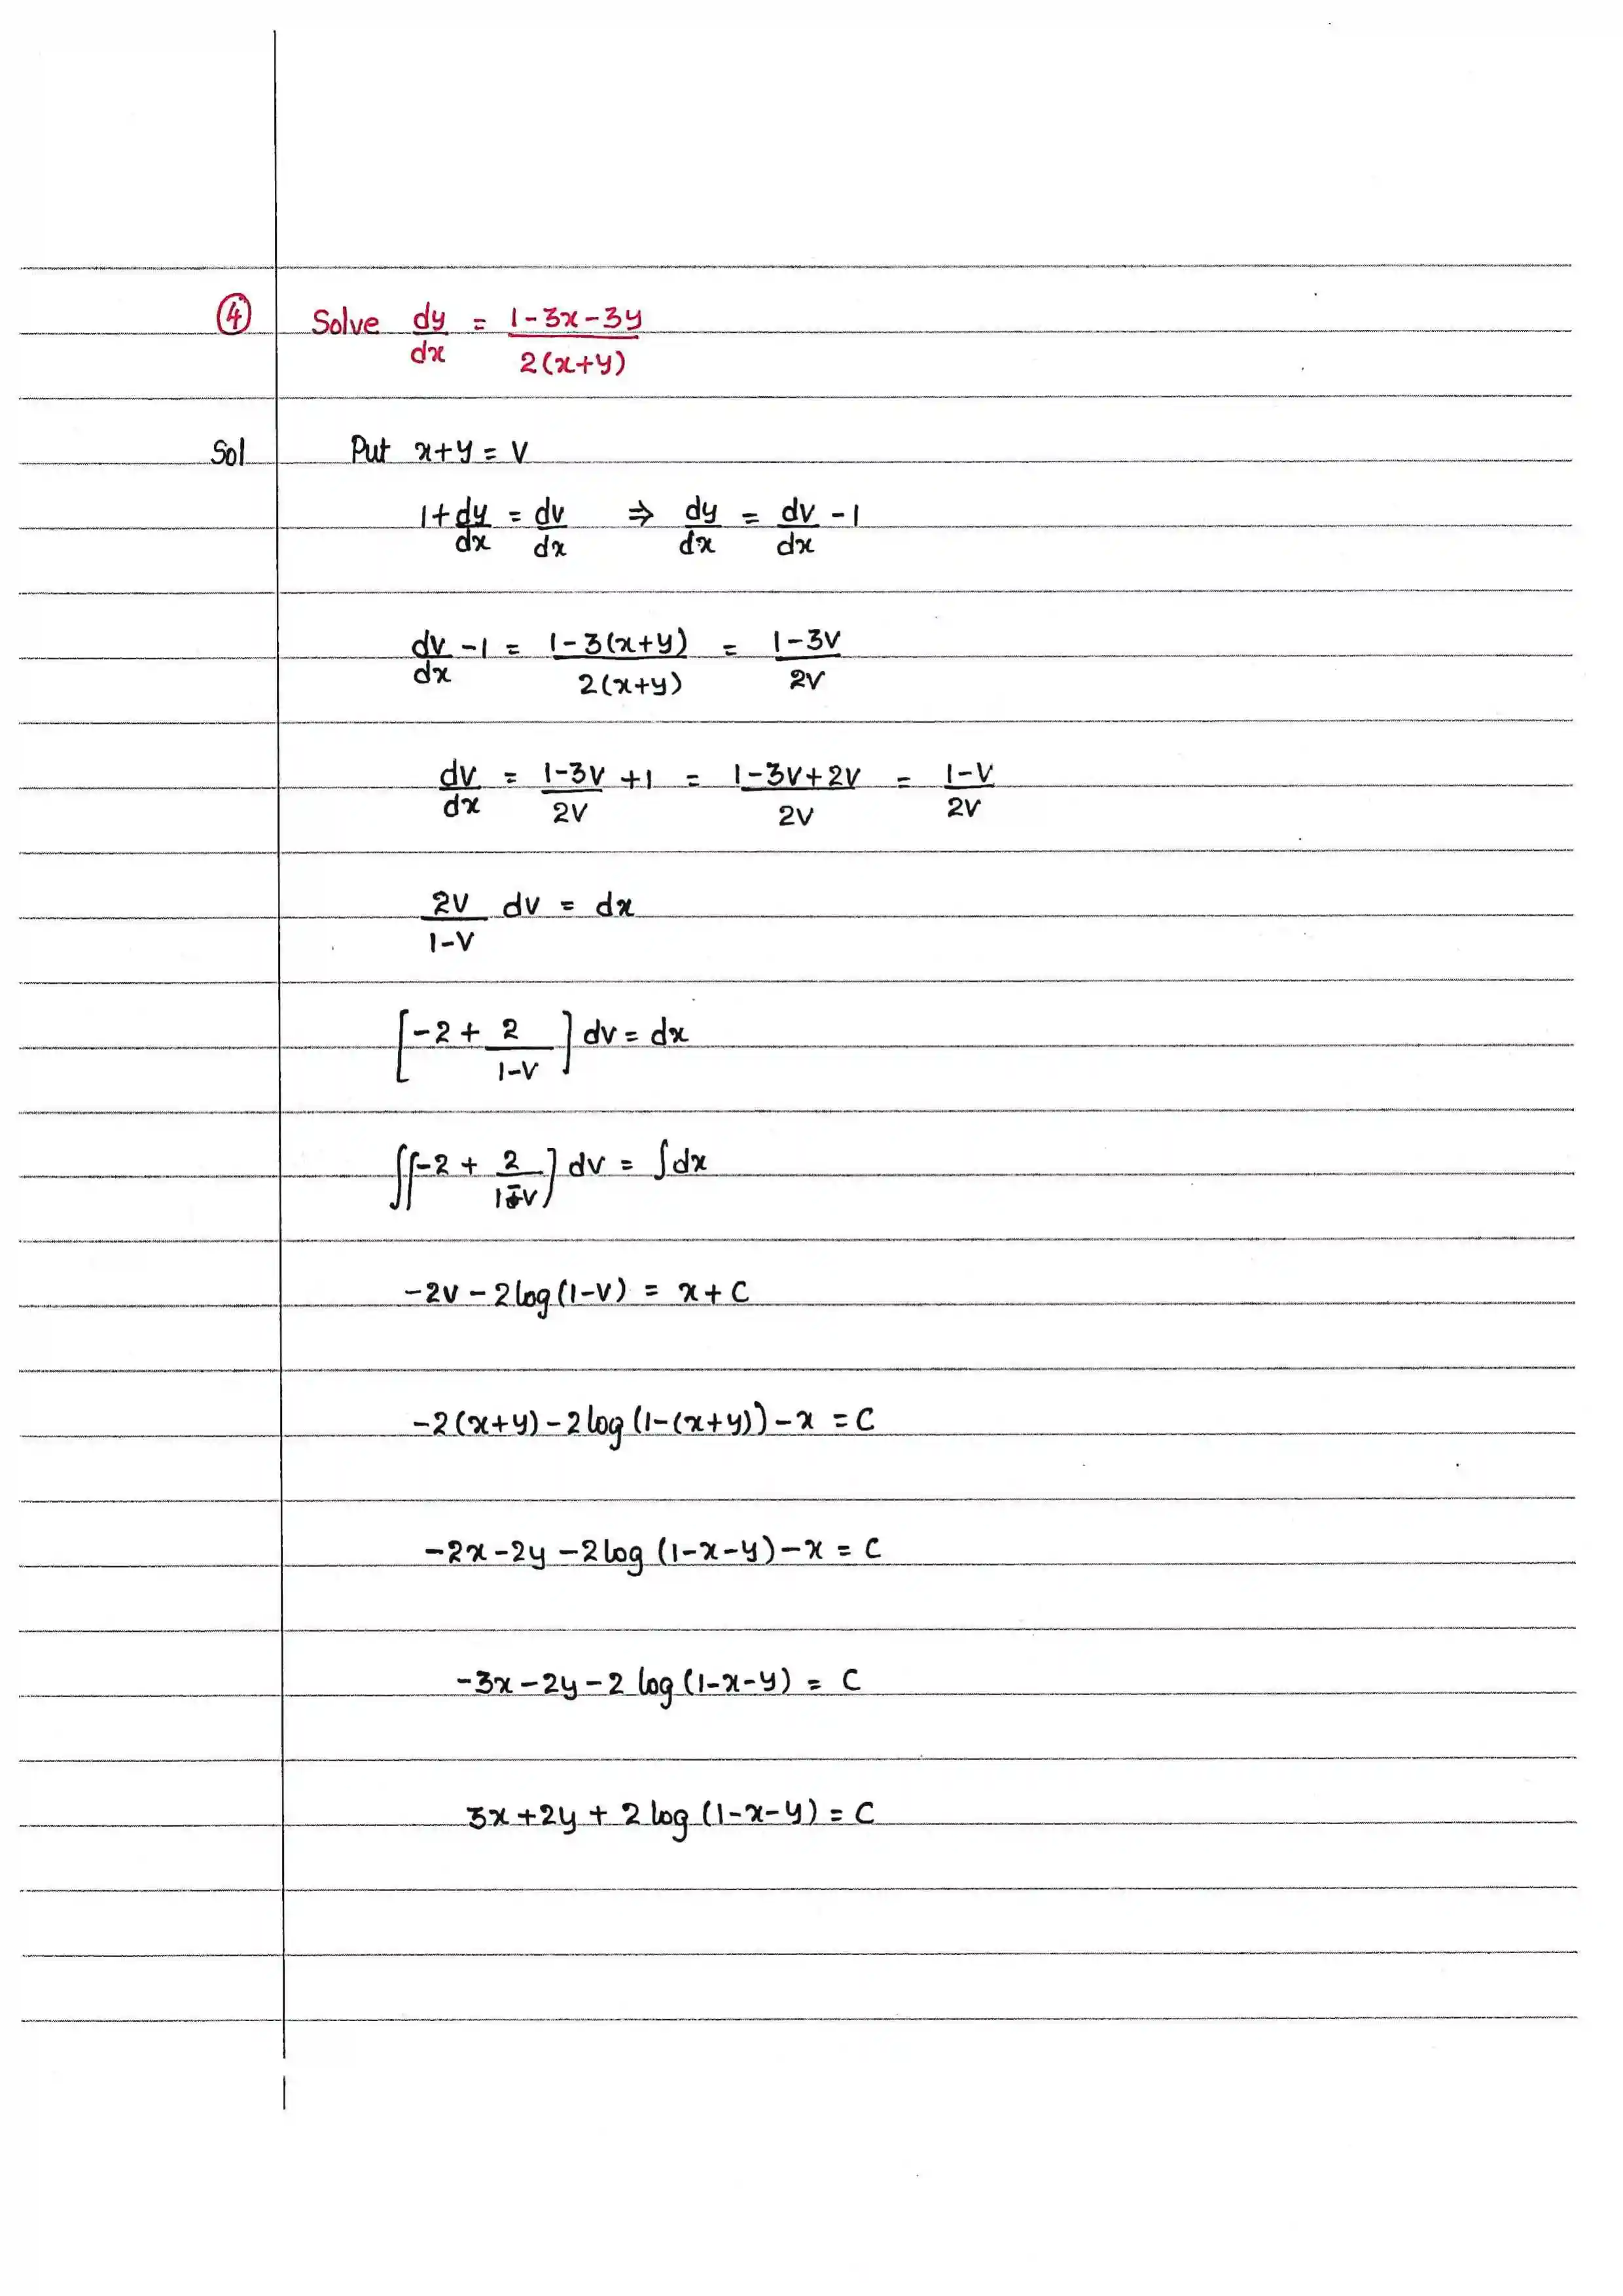 ④ Solve dy/dx = (1-3x-3y)/(2(x+y))
Sol Put x+y = v
1+dy/dx = dv/dx ⇒ dy/dx = dv/dx -1
dv/dx -1 = (1-3(x+y))/(2(x+y)) = (1-3v)/(2v)
dv/dx = (1-3v)/(2v) +1 = (1-3v+2v)/(2v) = (1-v)/(2v)
2v/(1-v) dv = dx
[-2 + 2/(1-v)] dv = dx
∫[-2 + 2/(1-v)] dv = ∫dx
-2v - 2log(1-v) = x + c
-2(x+y) - 2log(1-(x+y)) - x = c
-2x -2y -2log (1-x-y) - x = c
-3x - 2y - 2 log (1-x-y) = c
3x +2y + 2 log (1-x-y) = c